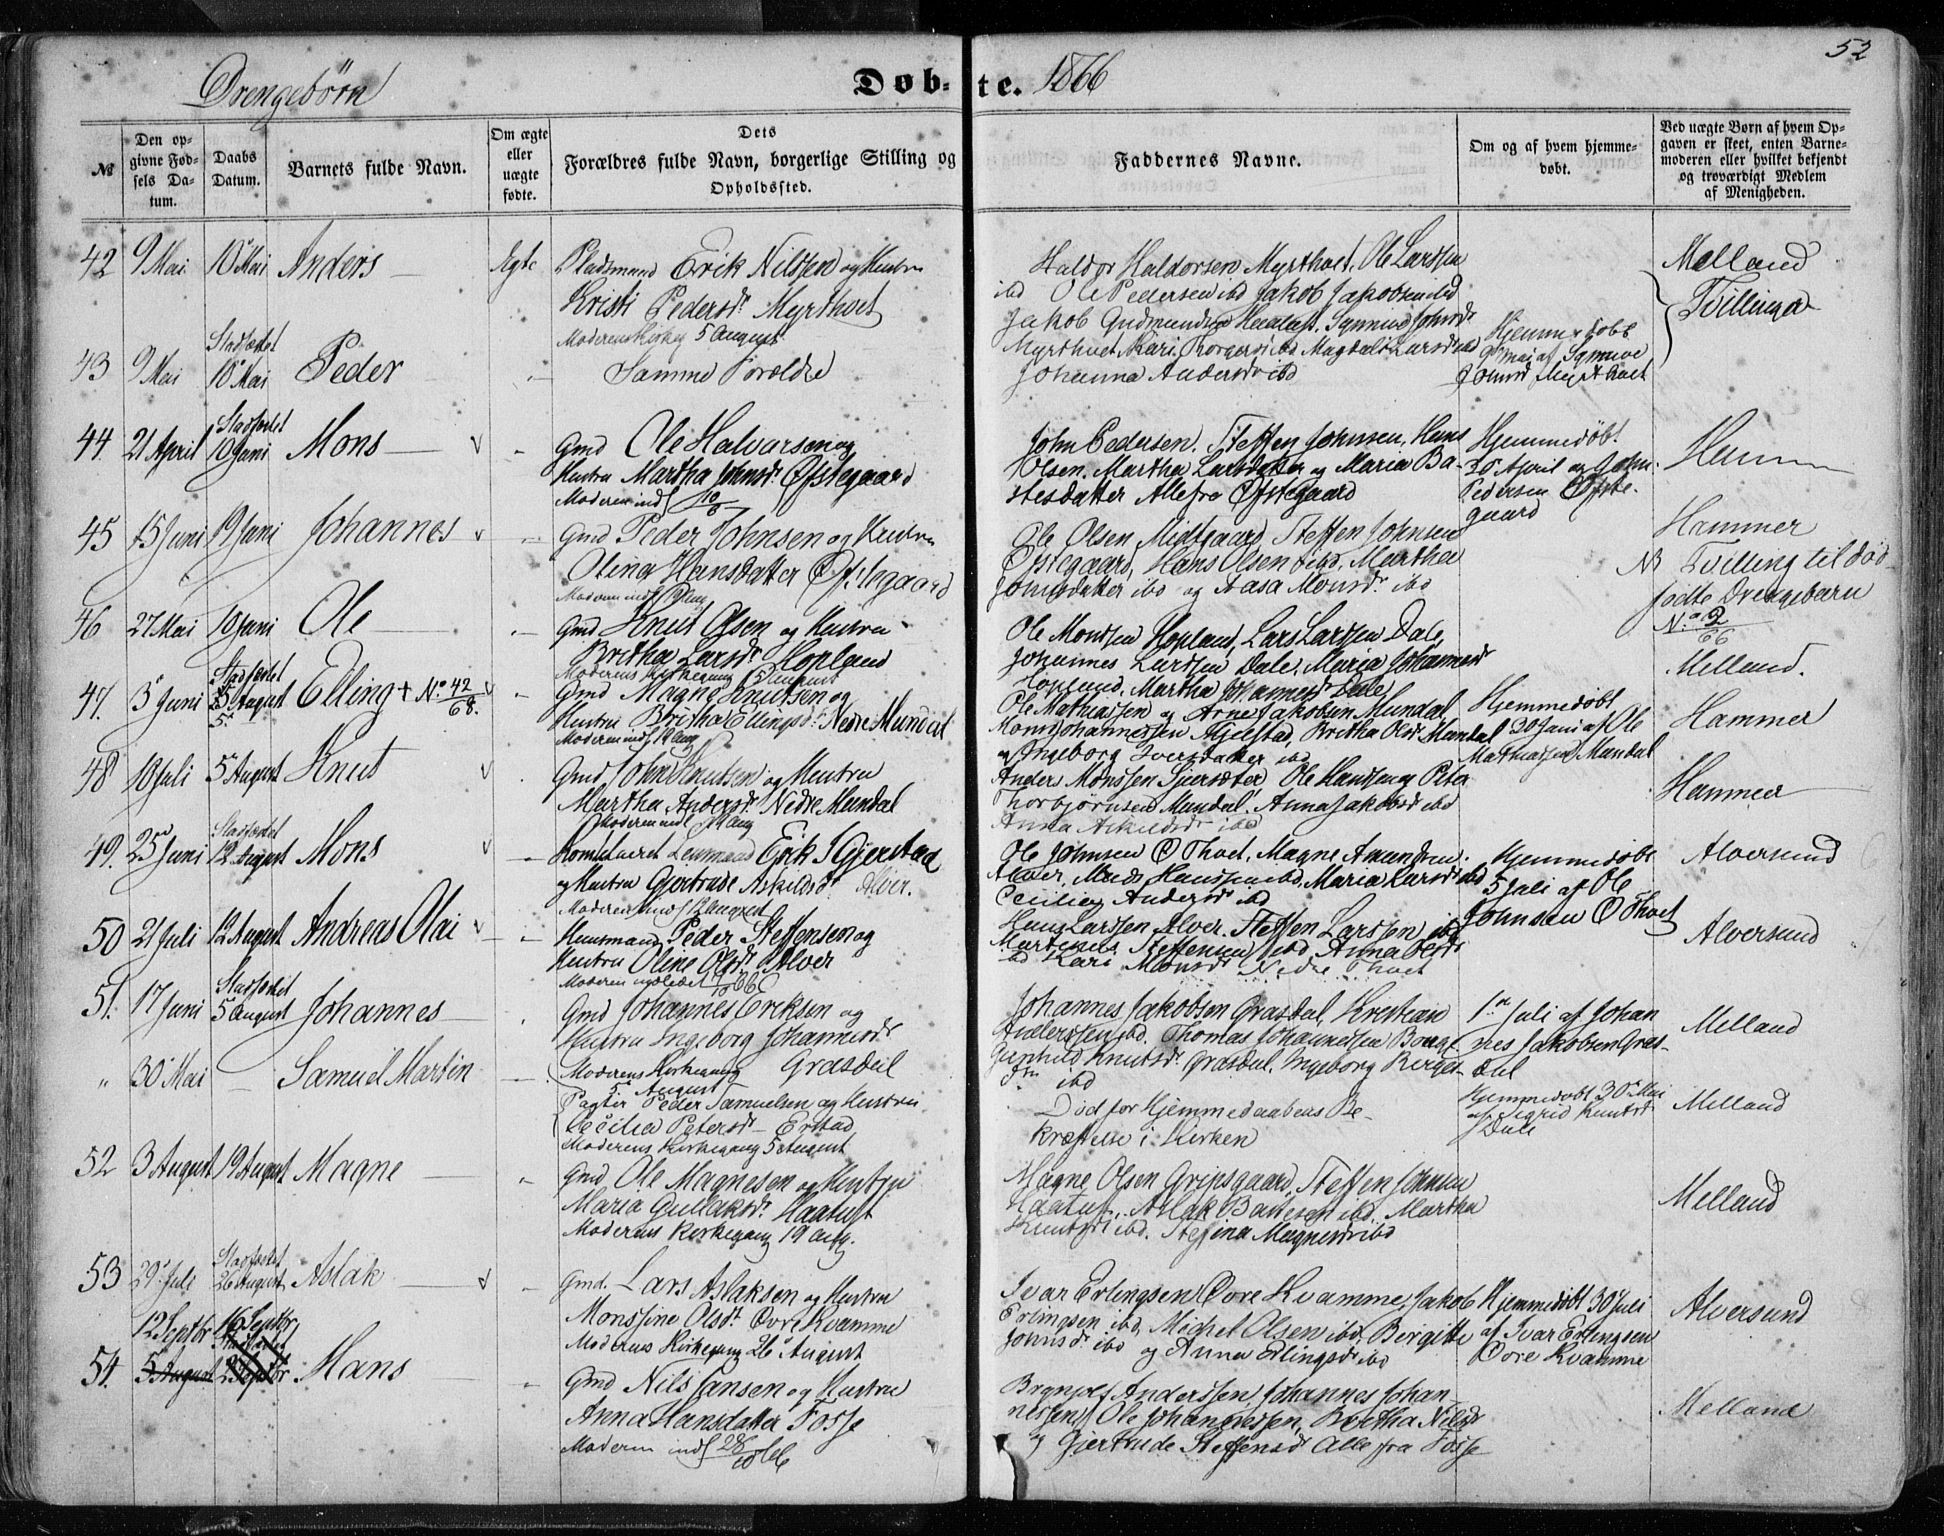 52
Drengebørn
Døb-te. 1866
№
Den opgivne Fødsels Datum.
Daabs Datum.
Barnets fulde Navn.
Om ægte eller uægte fødte.
Dets Forældres fulde Navn, borgerlige Stilling og Opholdssted.
Faddernes Navne.
Om og af hvem hjemmedøbt.
Ved uægte Børn af hvem Opgaven er skeet, enten Barnemoderen eller hvilket bekjendt og troværdigt Medlem af Menigheden.
42 9 Mai 10 Mai Anders Ægte
Pladsmand Erik Nilssen og Hustru
Kristi Pedersdr Myrthvet
Moderens Kirkeg 5 August
Haldor Haldorsen Myrthvet, Ole Larssen
ibd Ole Pedersen ibd Jakob Jakobsen ibd
Melland
Tvillinger
43 9 Mai Stadfæstet 10 Mai Peder
Samme Forældre
Jakob Gudmundsen
Myrthvet, Kari ibd Magdali Larsdr ibd
Johanna Andersdr ibd
Hjemmedøbt
9de Mai af
Johnsdr Myrthvet
44 21 April Stadfæstet 10 Juni Mons
Gmd Ole Halvorsen og
Hustru Martha Johnsdr Øfstegaard
Moderen indl 10/6
John Pedersen, Steffen Johnsen, Hans
Olsen. Martha Larsdatter og Maria Ba-
stesdatter Alle fra Øfstegaard
Hjemmedøbt
30te April af John
Pedersen Øfste-
gaard
45 15 Juni 19 Juni Johannes
Gmd Peder Johnsen og Hustru
Olina Hansdatter Øfstegaard
Ole Olsen Midtgaard, Steffen Johnsen
Øfstegaard, Hans Olsen ibd, Martha
Johnsdatter ibd og Aasa Monsdr ibd
Hammer
NB Tvilling til død-
fødte Drengebarn
No 2/66
46 27 Mai 10 Juni Ole
Gmd Knut Olsen og Hustru
Britha Larsdr Hopland
Moderens Kirkegang 5 August
Ole Monssen Hopland, Lars Larssen Dale,
Johannes Larssen Dale, Maria Johannesdr
Hopland, Martha Johannesdr Dale
Melland.
47. 3 Juni Stadfæstet 5 August Elling + No 42/68.
Gmd Magne Knutsen og
Hustru Britha Ellingsdr Nedre Mundal
Ole Mathiassen og Arne Jakobsen Mundal
Mons Johannessen Fjelstad, Britha Olsdr Mundal
og Ingeborg Iversdatter ibd
Hjemmedøbt
20 Juni af Ole
Mathiassen Mundal
Hammer
48 10 Juli 5 August Knut
Gmd John Knutsen og Hustru
Martha Andersdr Nedre Mundal
Anders Monssen, Ole Hanssen og Peter
Thorbjørnsen Mundal. Anna Jakobsdr ibd
Anna Askildsdr ibd
Hammer
49. 25 Juni Stadfæstet 12 August Mons
Konstitueret Lensmand Erik S Gjerstad
og Hustru Gjertrude Askildsdr Alver.
Ole Johnsen Ø Thvet, Magne Amundsen
Alver, Mads Hanssen ibd, Maria Larsdr ibd
Cecilia Andersdr ibd
Hjemmedøbt
5 Juli af Ole
Johnsen Ø Thvet
Alversund
50 21 Juli 12 August Andreas Olai
Huusmand Peder Steffensen og
Hustru Oline Olsdr Alver
Hans Larssen Alver, Steffen Larssen ibd
Martinus Steffensen ibd
ibd Kari Monsdr Nedre Thvet
Alversund
51. 17 Juni Stadfæstet 5 August Johannes
Gmd Johannes Eriksen og
Hustru Ingeborg Johannesdr
Grasdal
Moderens Kirkegang
5 August
Johannes Jakobsen Grasdal, Kristian
Anderssen ibd, Thomas Johannessen
Gunhild Knutsdr Grasdal, Ingeborg
ibd
1ste Juli af Johan
nes Jakobsen Gras-
dal
Melland
" 30 Mai Samuel Martin
Pagtir Peder Samuelsen og Hustru
Cecilia Petersdr Erstad
Moderens Kirkegang 5 August
Død før Hjemmedaabens Be-
kræftelse i Kirken
Hjemmedøbt 30 Mai
af Sigrid Knutsdr
Dale
Melland
52 3 August 19 August Magne
Gmd Ole Magnesen og Hustru
Maria Gullaksdr Haatuft
Moderens Kirkegang 19 Aug.
Magne Olsen Gripsgaard, Steffen Johnsen
Haatuft, Aslak ibd, Martha
Knutsdr ibd. Steffina Magnesdr ibd
Melland
53 29 Juli Stadfæstet 26 August Aslak
Gmd. Lars Aslaksen og Hustru
Monssine Olsdr Øvre Kvamme
Moderens Kirkegang 26 August
Ivar Erlingsen Øvre Kvamme, Jakob
Erlingsen ibd, Michel Olsen ibd, Birgitte
Johnsdr ibd og Anna Erlingsdr ibd
Hjemmedøbt 30 Juli
af Ivar Erlingsen
Øvre Kvamme
Alversund
54. 12 Septbr 16 Septbr Hans
5 August 2 Septbr
Gmd Nils Hansen og Hustru
Anna Hansdatter Fosse
Brynjolf Anderssen, Johannes Johan-
nessen, Ole Johannessen, Britha Nilsdr
og Gjertrude Steffensdr Alle fra Fosse
Melland